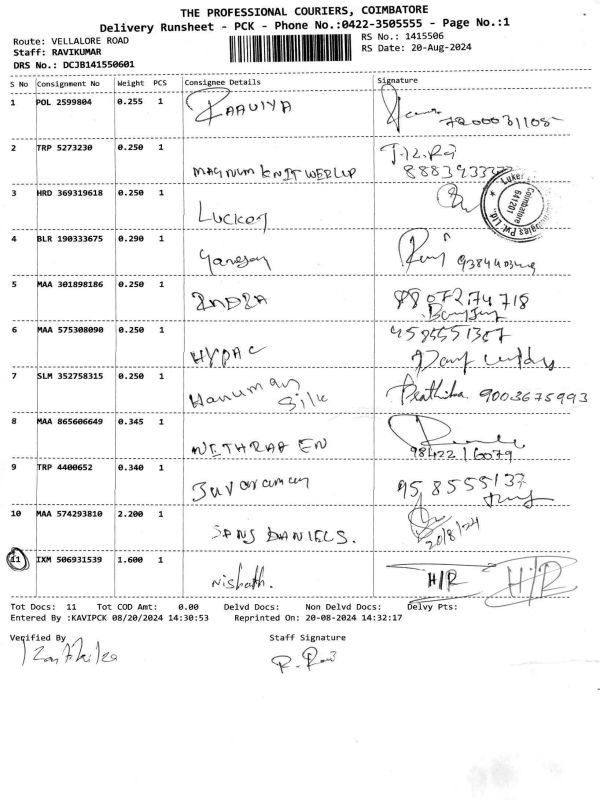 THE PROFESSIONAL COURIERS, COIMBATORE
Delivery Runsheet - PCK - Phone No.:0422-3505555 - Page No.:1
Route: VELLALORE ROAD
RS No.: 1415506
Staff: RAVIKUMAR
RS Date: 20-Aug-2024
DRS No.: DCJB141550601
S No Consignment No Weight PCS Consignee Details Signature
1 POL 2599804 0.255 1 RAAVIYA
2 TRP 5273230 0.250 1 MAGNUM KNIT
3 HRD 369319618 0.250 1
Coimbatore
641201
Pvt. Ltd.
4 BLR 190333675 0.290 1
5 MAA 301898186 0.250 1
6 MAA 575308090 0.250 1 HYPAC
7 SLM 352758315 0.250 1 Hanuman Silk 9003675993
8 MAA 865606649 0.345 1
98422 16079
9 TRP 4400652 0.340 1
95 8555137
10 MAA 574293810 2.200 1 SANS DANIELS.
20/8/24
11 IXM 506931539 1.600 1 Nishath. H/R H/R
Tot Docs: 11 Tot COD Amt: 0.00 Delvd Docs: Non Delvd Docs: Delvy Pts:
Entered By :KAVIPCK 08/20/2024 14:30:53 Reprinted On: 20-08-2024 14:32:17
Verified By Staff Signature